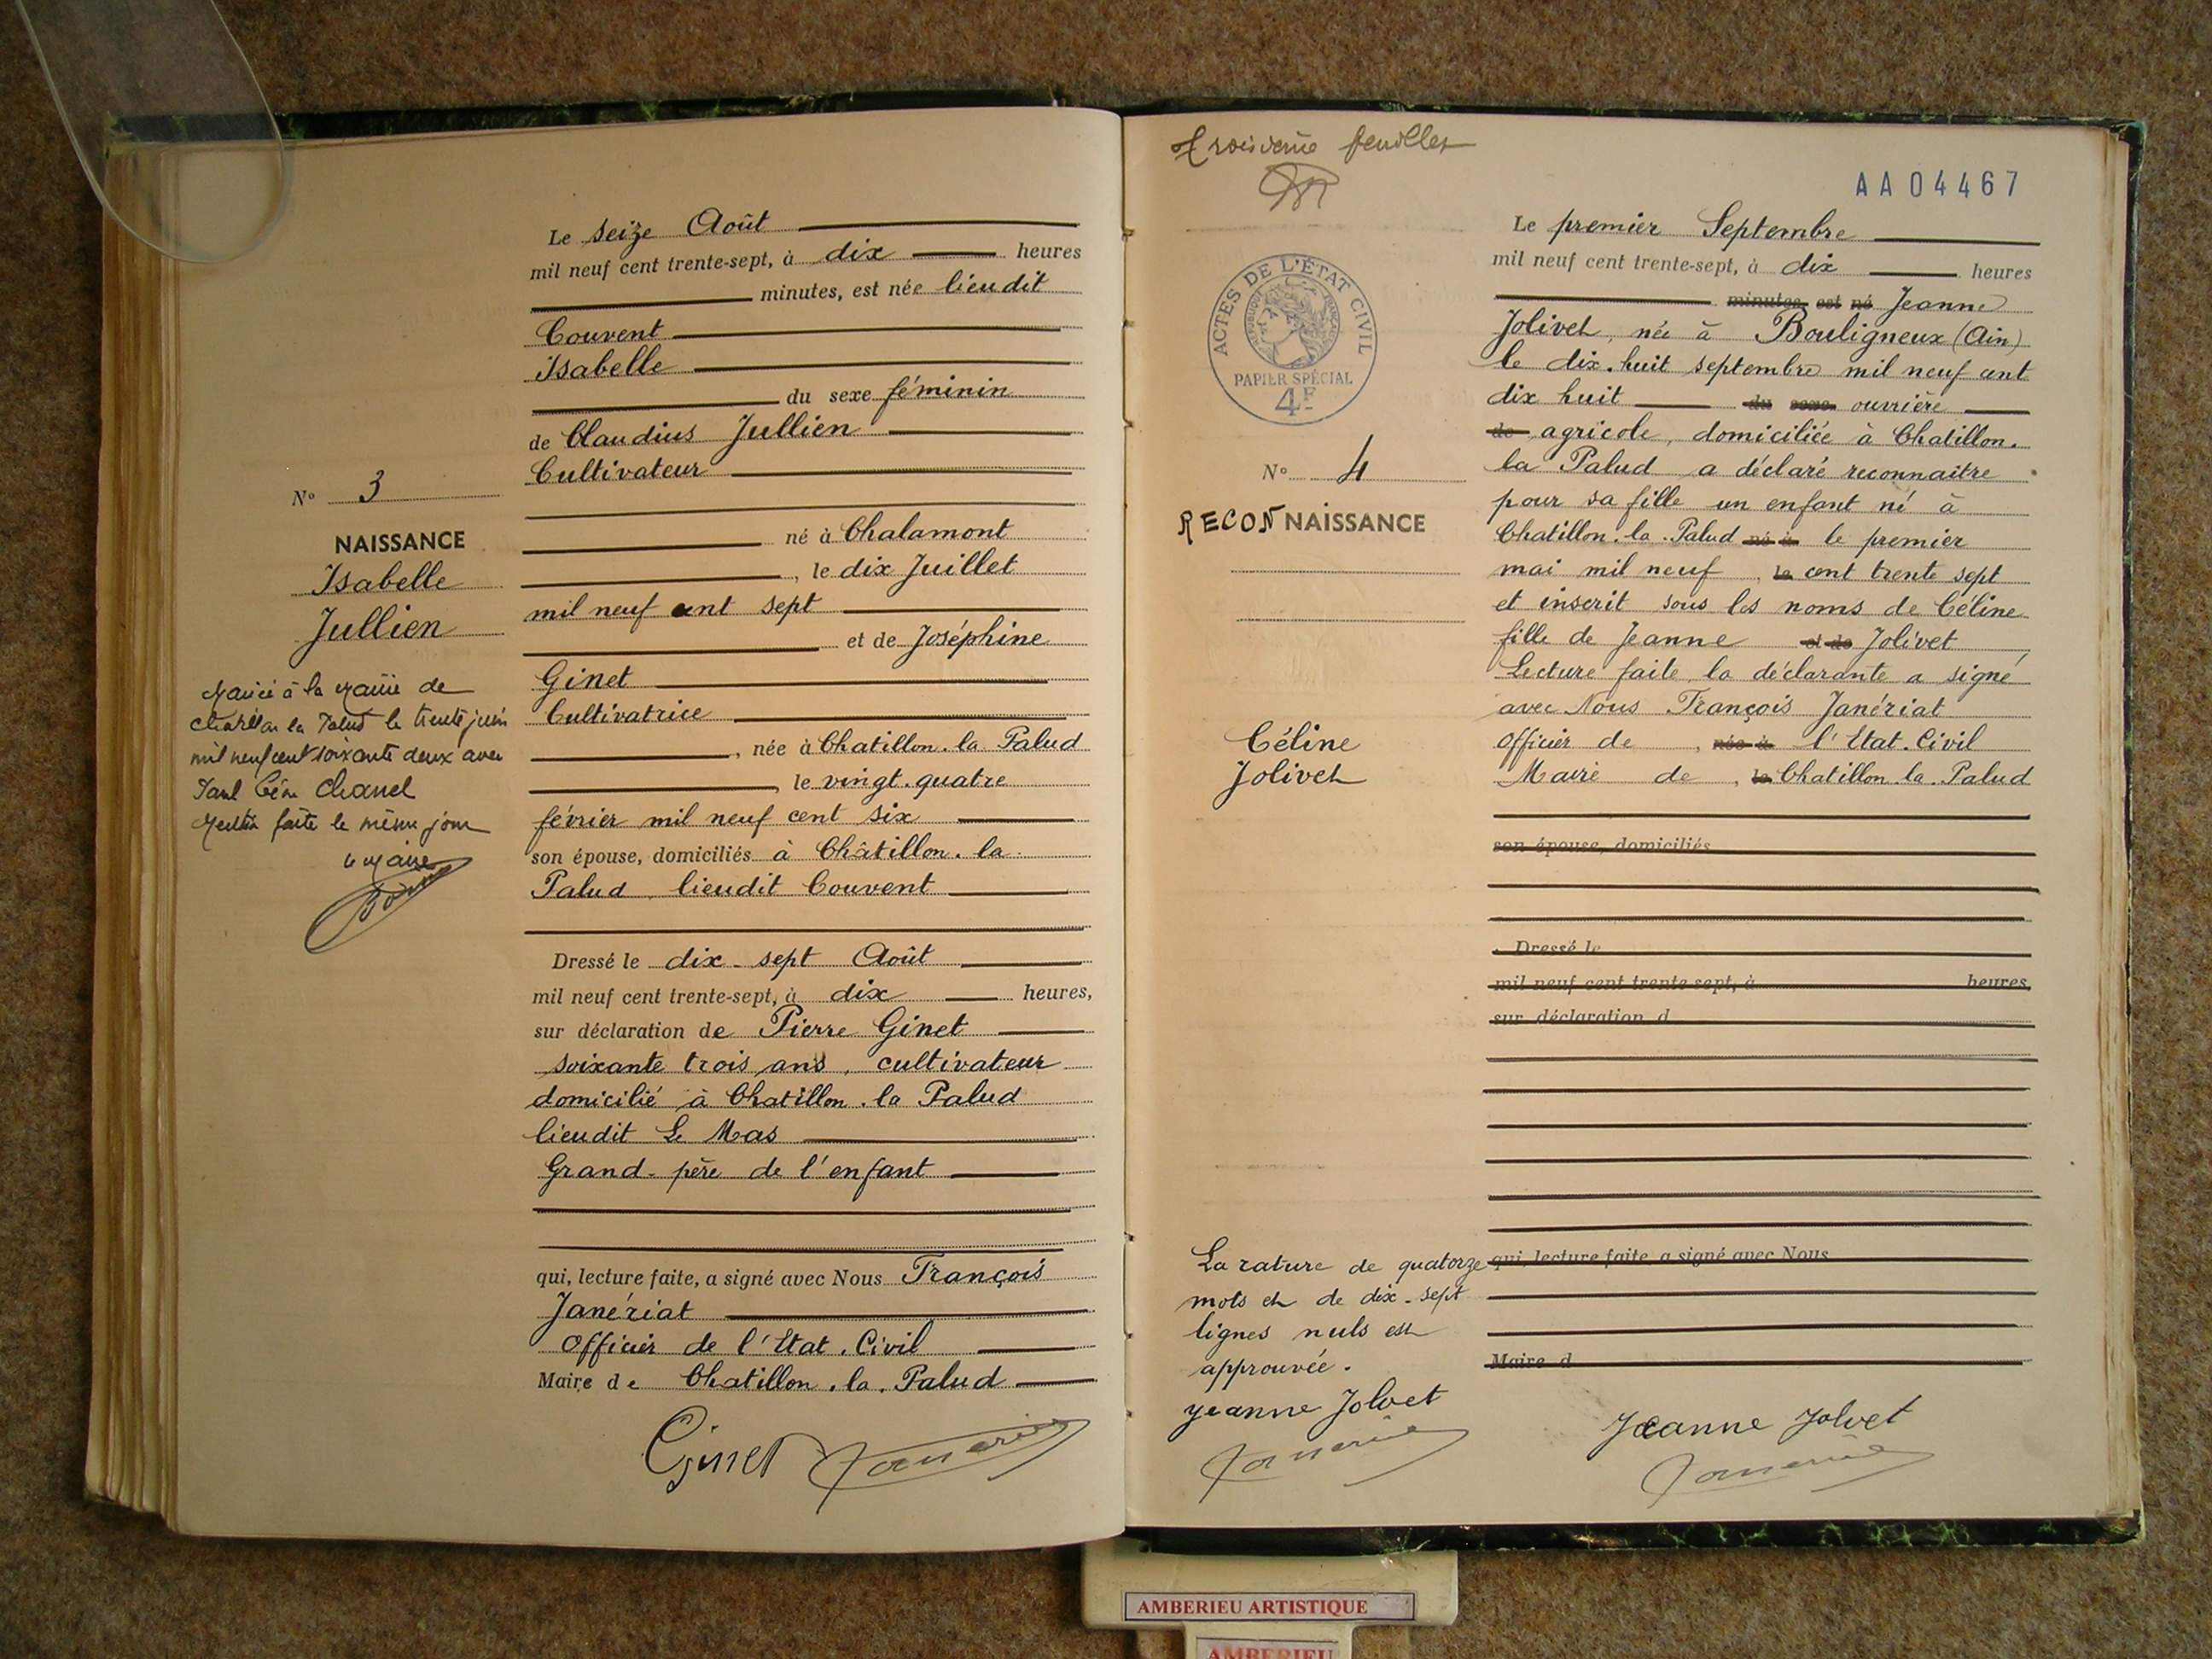 Le seize Août
mil neuf cent trente-sept, à dix heures
minutes, est née lieudit
Couvent
Isabelle
du sexe féminin
de Claudius Jullien
Cultivateur
né à Chalamont
, le dix Juillet
mil neuf cent sept
et de Joséphine
Ginet
Cultivatrice
, née à Chatillon. la Palud
, le vingt. quatre
février mil neuf cent six
son épouse, domiciliés à Châtillon. la
Palud, lieudit Couvent
Dressé le dix-sept Août
mil neuf cent trente-sept, à dix heures,
sur déclaration de Pierre Ginet
soixante trois ans, cultivateur
domicilié à Chatillon. la Palud
lieudit Le Mas
Grand-père de l'enfant
qui, lecture faite, a signé avec Nous François
Janériat
Officier de l'Etat. Civil
Maire de Chatillon. la. Palud
Ginet
N° 3
NAISSANCE
Isabelle
Jullien
Mariée à la Mairie de
Chatillon la Palud le trente juin
mil neuf cent soixante deux avec
Paul Chanel
faite le même jour
le Maire
troisième feuillet
AA04467
ACTES DE L'ÉTAT CIVIL
RÉPUBLIQUE FRANÇAISE
PAPIER SPÉCIAL
4F
N° 4
RECONNAISSANCE
Céline
Jolivet
Le premier Septembre
mil neuf cent trente-sept, à dix heures
minutes, est né Jeanne
Jolivet, née à Bouligneux (Ain)
le dix. huit septembre mil neuf cent
dix huit du sexe ouvrière
de agricole, domiciliée à Chatillon.
la Palud a déclaré reconnaître
pour sa fille un enfant né à
Chatillon. la. Palud né à le premier
mai mil neuf , le cent trente sept
et inscrit sous les noms de Céline
fille de Jeanne et de Jolivet
Lecture faite, la déclarante a signé
avec Nous François Janériat
Officier de , née à l'Etat. Civil
Maire de , le Chatillon. la. Palud
son épouse, domiciliés
Dressé le
mil neuf cent trente-sept, à heures,
sur déclaration d
qui, lecture faite, a signé avec Nous
Maire d
La rature de quatorze
mots et de dix-sept
lignes nuls est
approuvée.
Jeanne Jolivet
Jeanne Jolivet
AMBERIEU ARTISTIQUE
AMBERIEU